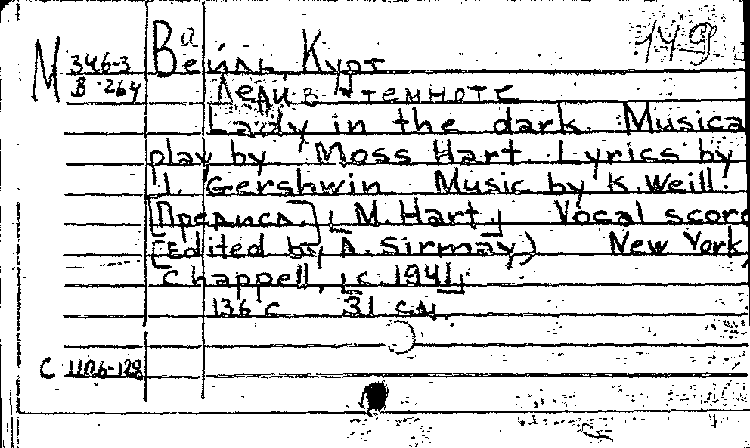 149
М 346-3 Ва
В-264 Вейль, Курт
Леди в темноте
Lady in the dark. Musica
play by Moss Hart. Lyrics by
I. Gershwin. Music by K. Weill.
[Предисл.] [M. Hart] Vocal score
(Edited by A. Sirmay) New York,
Chappell, [c. 1941]
136 с 31 см.
С 1106-128